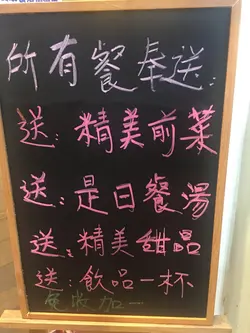 所有餐奉送：
送：精美前菜
送：是日餐湯
送：精美甜品
送：飲品一杯
免收加一